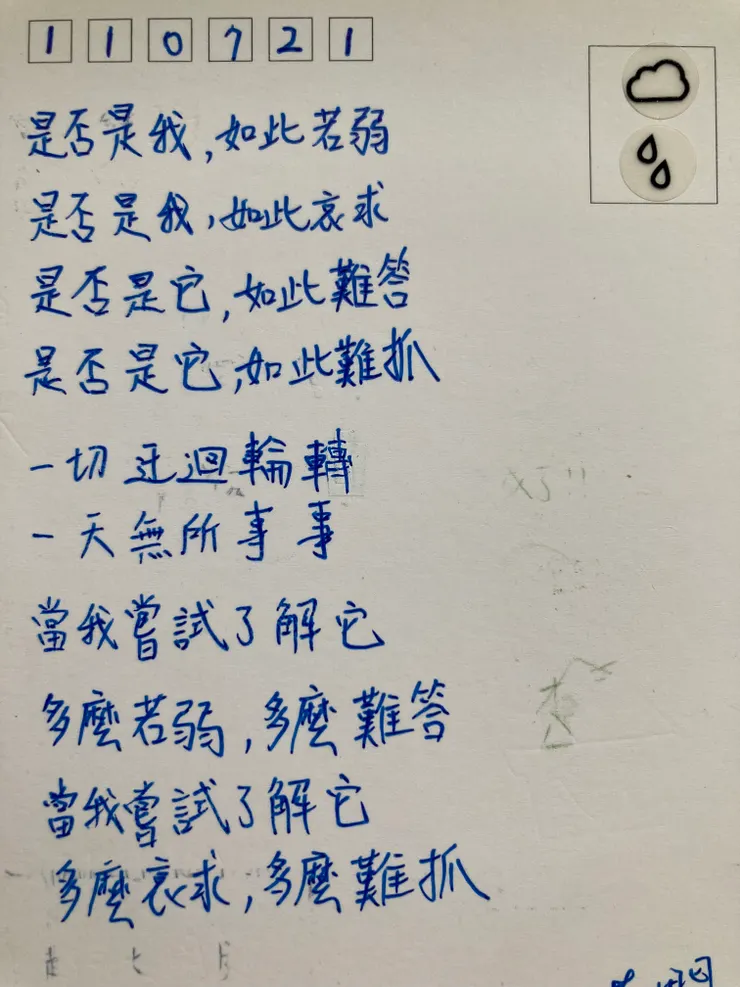 110721
是否是我,如此若弱
是否是我,如此哀求
是否是它,如此難答
是否是它,如此難抓
一切迂迴輪轉
一天無所事事
當我嘗試了解它
多麼若弱,多麼難答
當我嘗試了解它
多麼哀求,多麼難抓